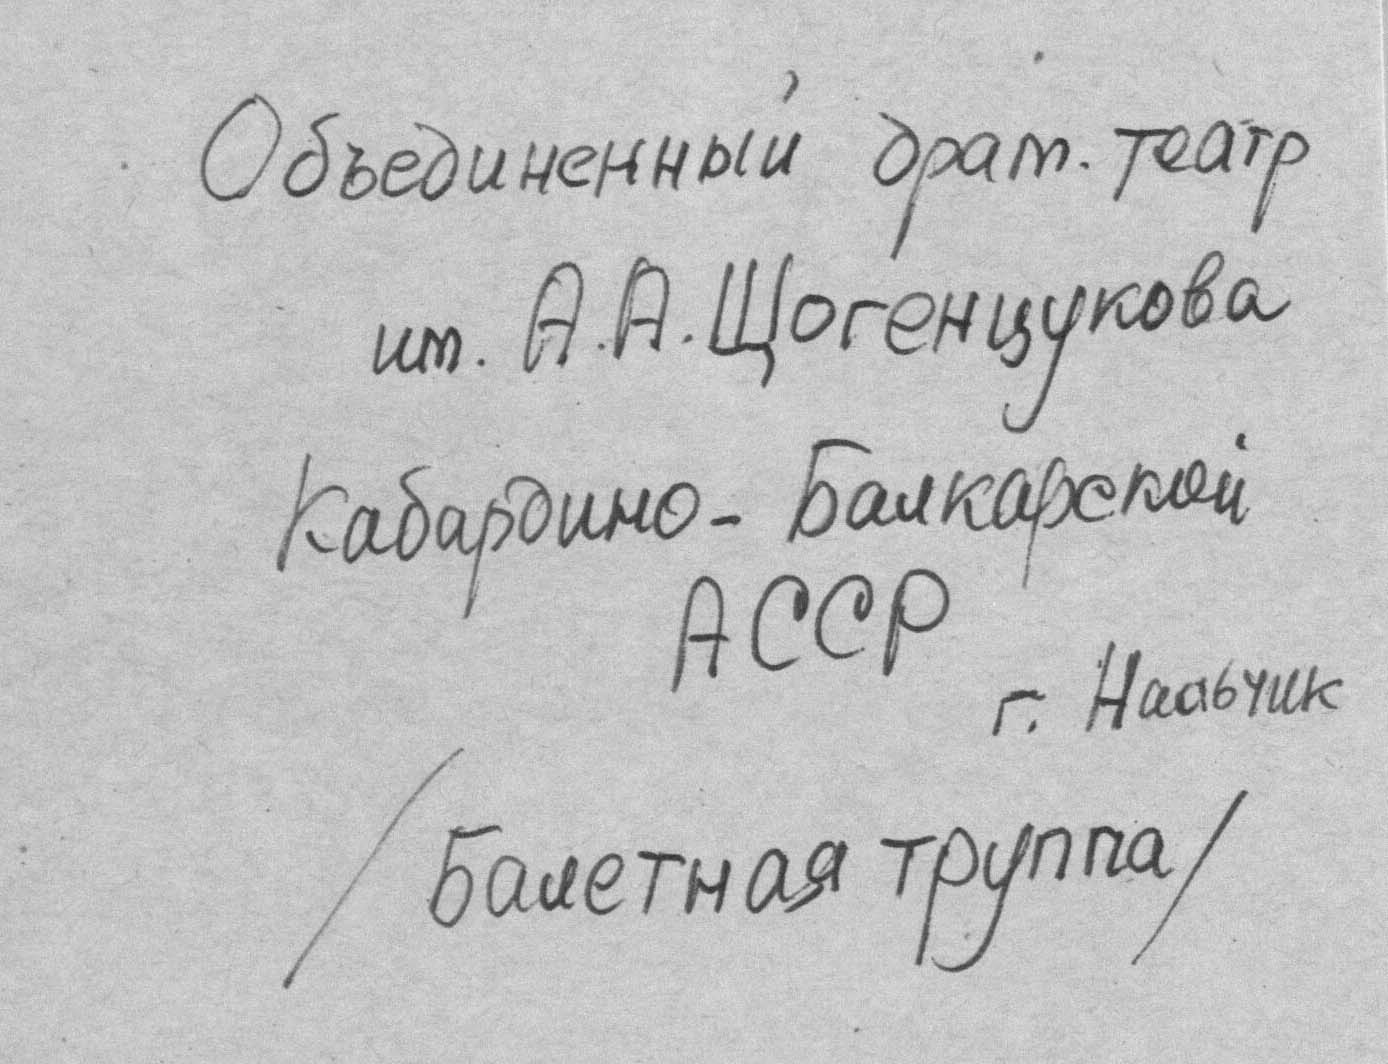 Объединенный драм. театр
им. А.А. Щогенцукова
Кабардино-Балкарской
АССР
г. Нальчик
/Балетная труппа/